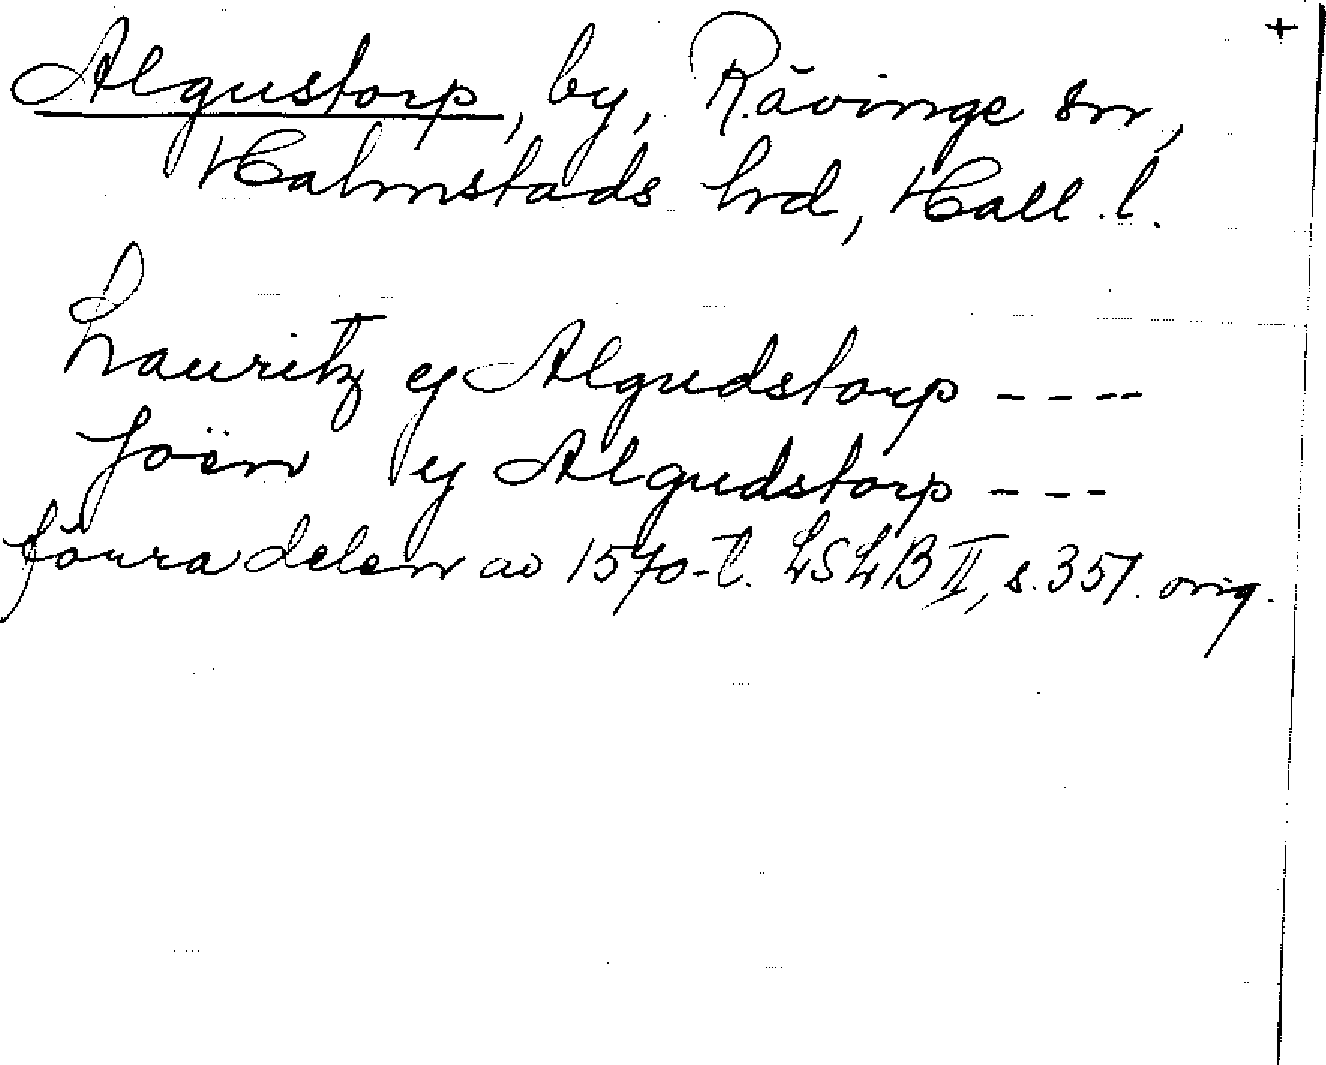 +
Algustorp, by, Rävinge sn,
Halmstads hrd, Hall. l.
Lauritz ej Algudstorp ----
Joën ej Algudstorp ---
förra delen av 1570-t. LSLB II, s. 357. orig.